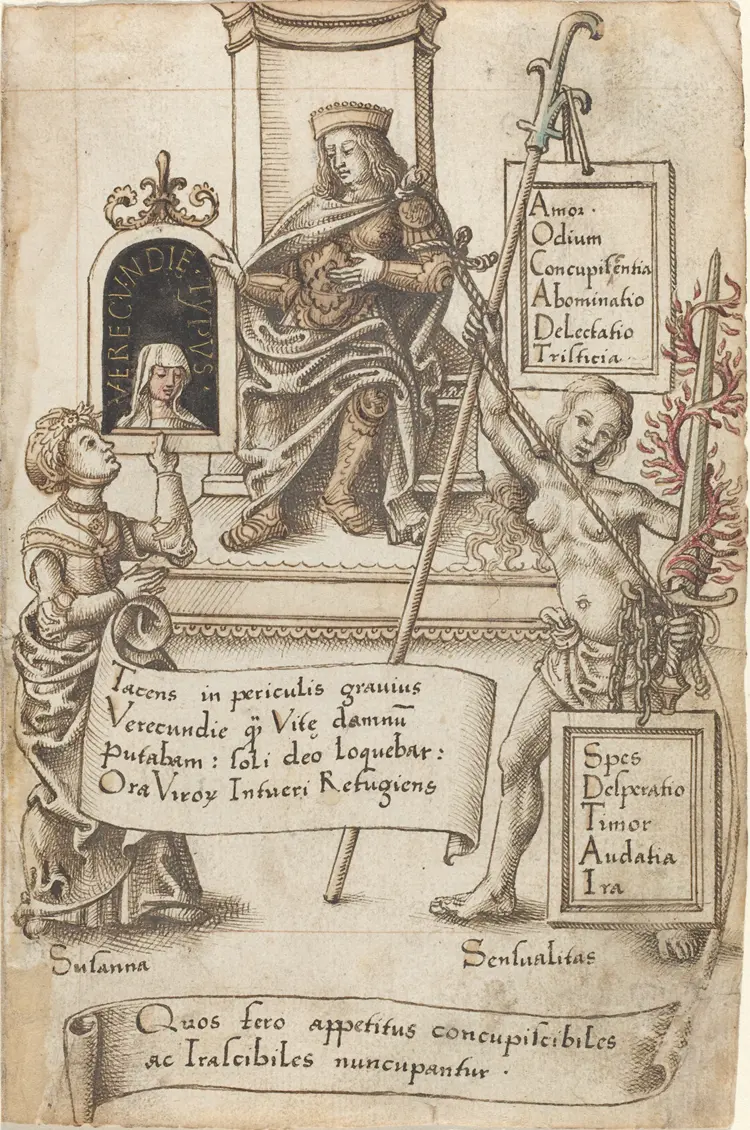 VERECUNDIE · TYPVS ·
Amor ·
Odium
Concupiscentia
Abominatio
Delectatio
Tristicia
Tacens in periculis gravius
Verecundie q̄ȝ Vitę damnū
Putabam : soli deo loquebar :
Ora Viroꝝ Intueri Refugiens
Spes
Desperatio
Timor
Audatia
Ira
Susanna
Sensualitas
Quos fero appetitus concupiscibiles
ac Irascibiles nuncupantur ·